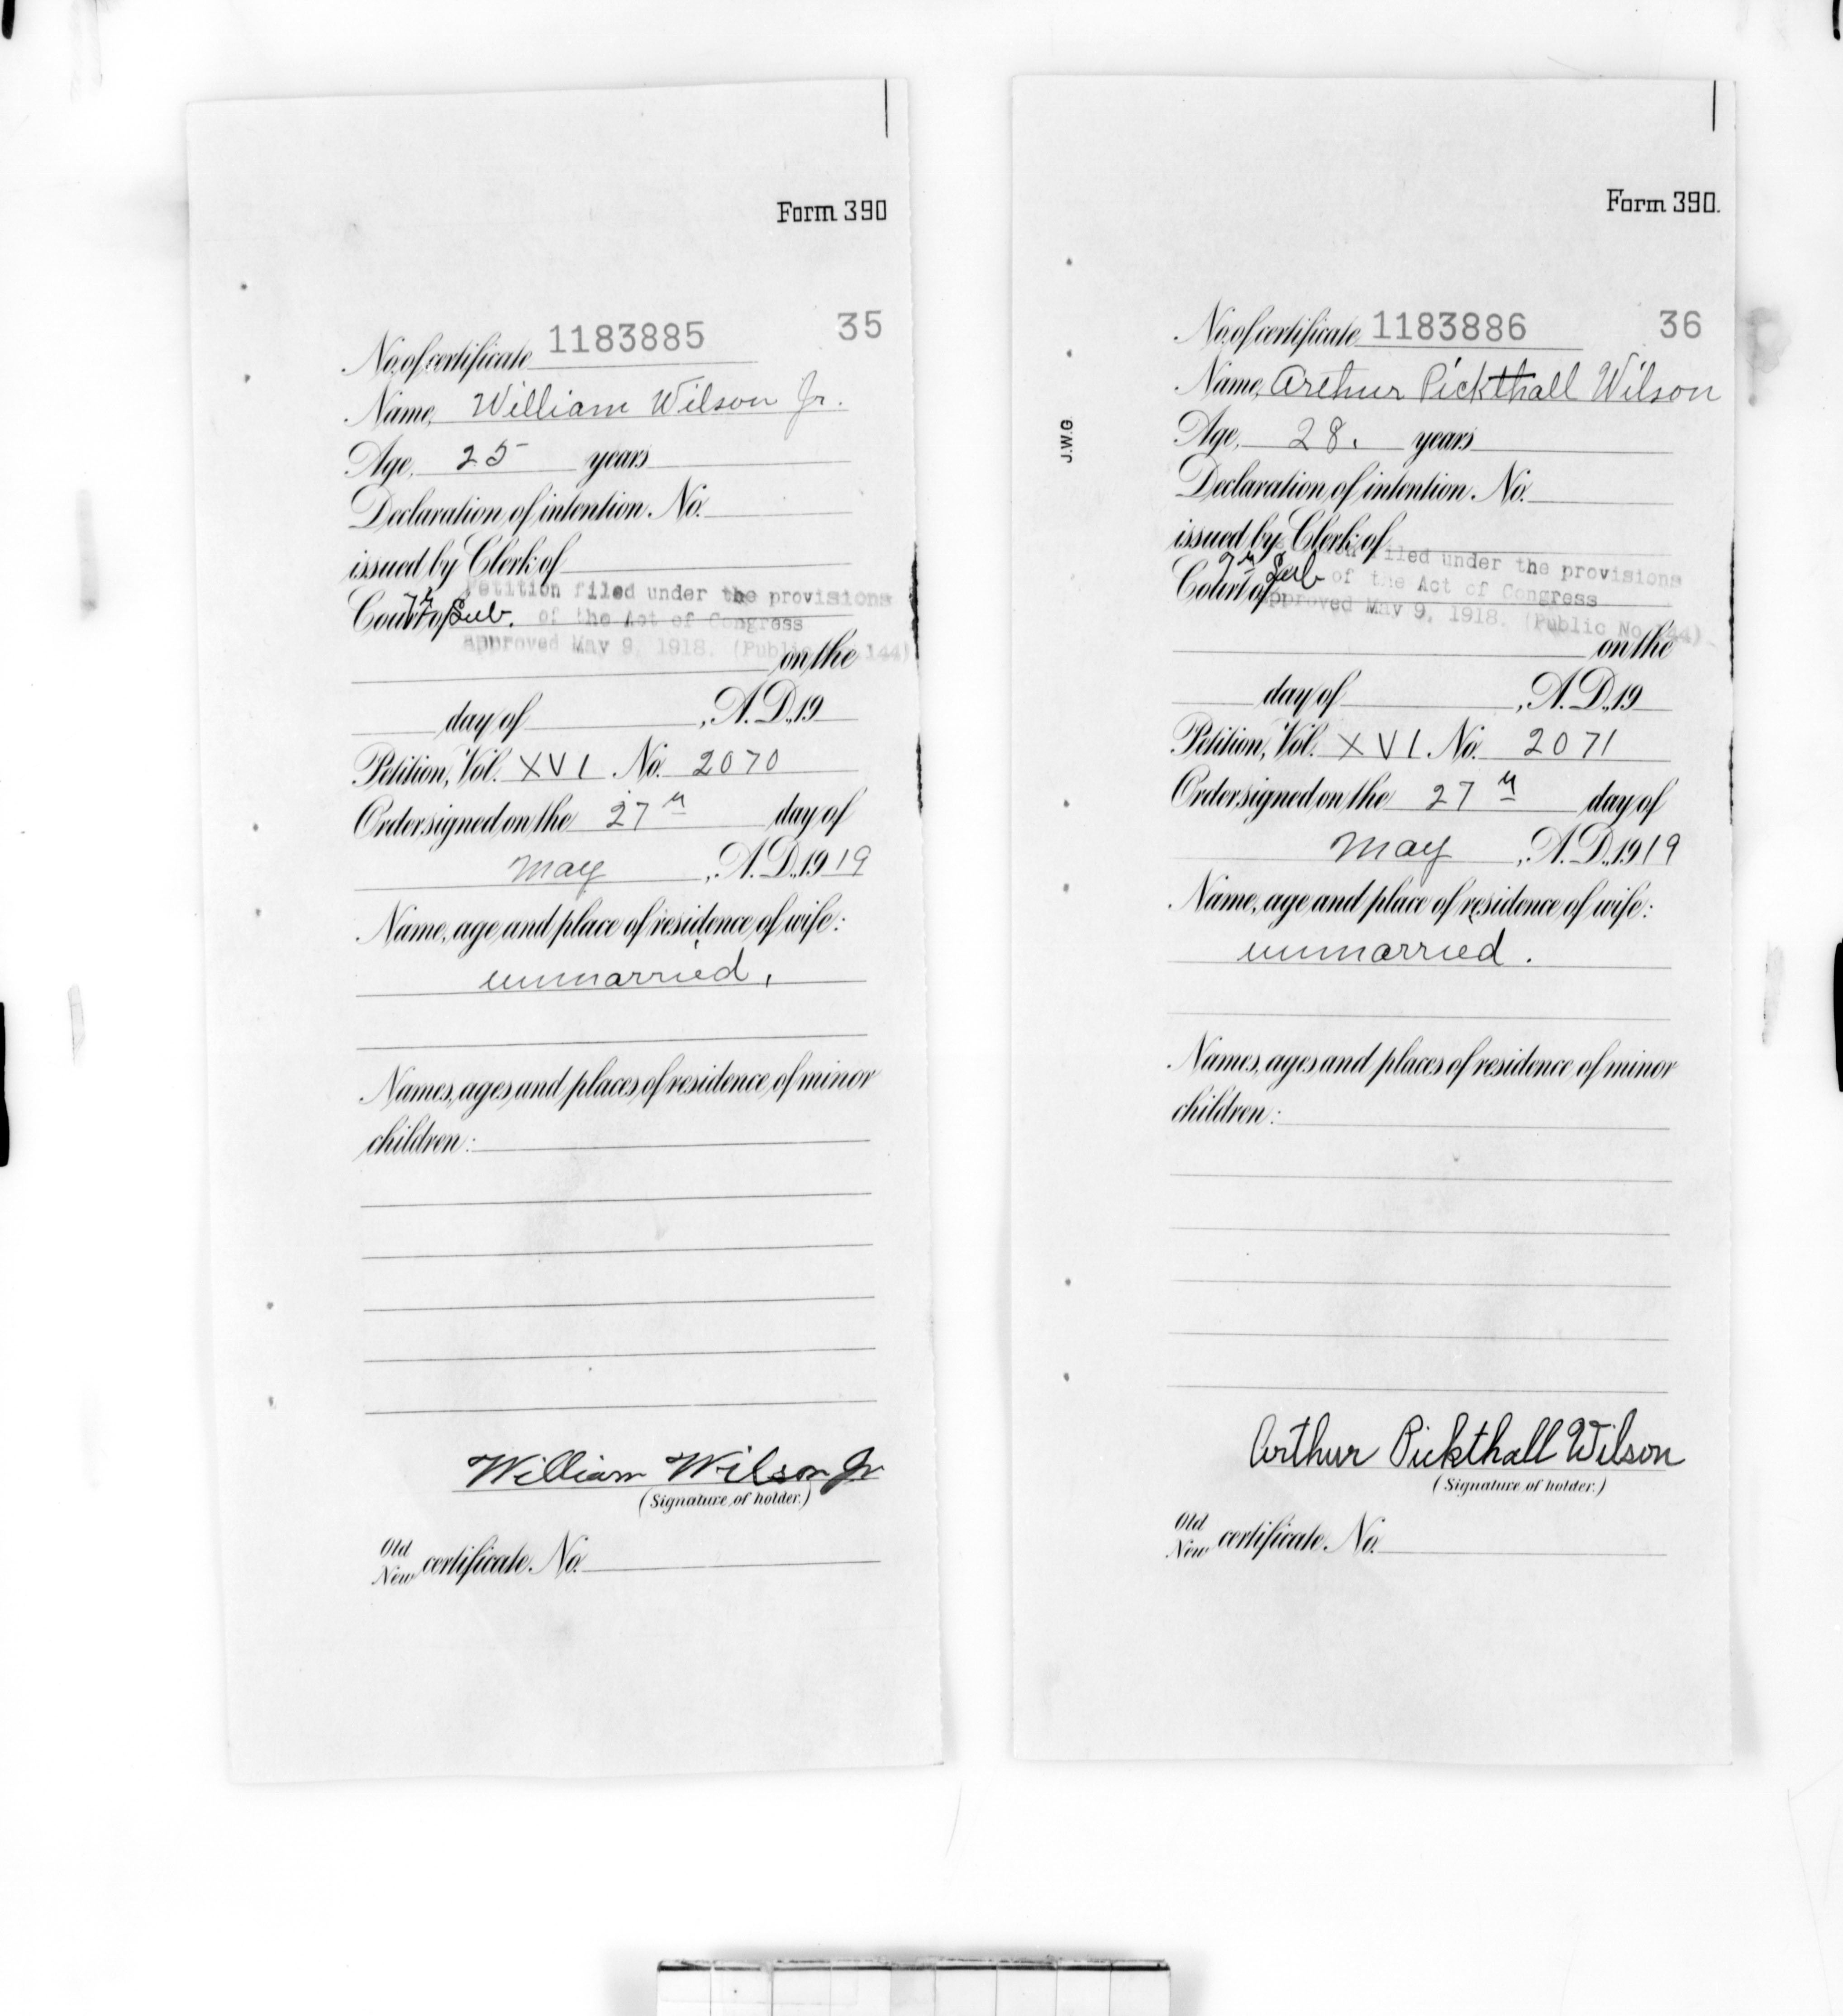 Form 390
No. of certificate 1183885 35
Name, William Wilson Jr.
Age, 25 years
Declaration of intention No.
issued by Clerk of
Petition filed under the provisions
Court of 7th Sub. of the Act of Congress
Approved May 9, 1918. (Public No. 144)
on the
day of , A. D., 19
Petition, Vol. XVI No. 2070
Order signed on the 27th day of
May , A. D., 1919
Name, age and place of residence of wife:
unmarried.
Names, ages and places of residence of minor
children:
William Wilson Jr
(Signature of holder.)
Old
New certificate No.
Form 390.
No. of certificate 1183886 36
Name, Arthur Pickthall Wilson
J.W.G.
Age, 28. years
Declaration of intention No.
issued by Clerk of
Petition filed under the provisions
Court of 7th Sub of the Act of Congress
Approved May 9, 1918. (Public No. 144)
on the
day of , A. D., 19
Petition, Vol. XVI No. 2071
Order signed on the 27th day of
May , A. D., 1919
Name, age and place of residence of wife:
unmarried.
Names, ages and places of residence of minor
children:
Arthur Pickthall Wilson
(Signature of holder.)
Old
New certificate No.